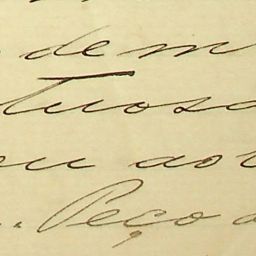 de m
tuosa
ou ao
. Peço a